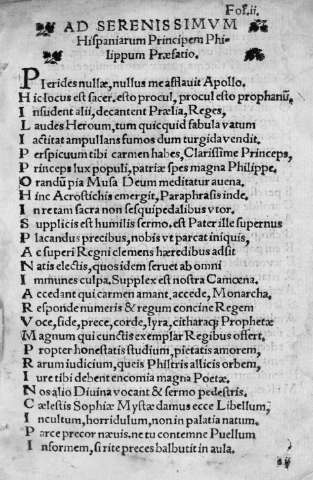 Fol.ii.
AD SERENISSIMVM
Hispaniarum Principem Phi-
lippum Præfatio.
PIerides nullæ, nullus me afflauit Apollo.
Hic locus est sacer. esto procul, procul esto prophanũ,
Insident alii, decantent Prælia, Reges,
Laudes Heroum, tum quicquid fabula vatum
Iactitat ampullans fumos dum turgida vendit.
Perspicuum tibi carmen habes, Clarissime Princeps,
Princeps lux populi, patriæ spes magna Philippe.
Orandũ pia Musa Deum meditatur auena.
Hinc Acrostichis emergit, Paraphrasis inde.
In re tam sacra non sesquipedalibus vtor.
Supplicis est humilis sermo. est Pater ille supernus
Placandus precibus, nobis vt parcat iniquis,
Ac superi Regni clemens hæredibus adsit
Natis electis, quos idem seruet ab omni
Immunes culpa. Supplex est nostra Camœna.
Accedant qui carmen amant, accede, Monarcha,
Responde numeris & regum concine Regem
Voce, fide, prece, corde, lyra, citharaq; Prophetæ
Magnum qui cunctis exemplar Regibus offert.
Propter honestatis studium, pietatis amorem,
Rarum iudicium, queis Philtris allicis orbem,
Iure tibi debent encomia magna Poetæ.
Nos alio Diuina vocant & sermo pedestris.
Cælestis Sophiæ Mystæ damus ecce Libellum,
Incultum, horridulum, non in palatia natum.
Parce precor næuis. ne tu contemne Puellum
Informem, si rite preces balbutit in aula.